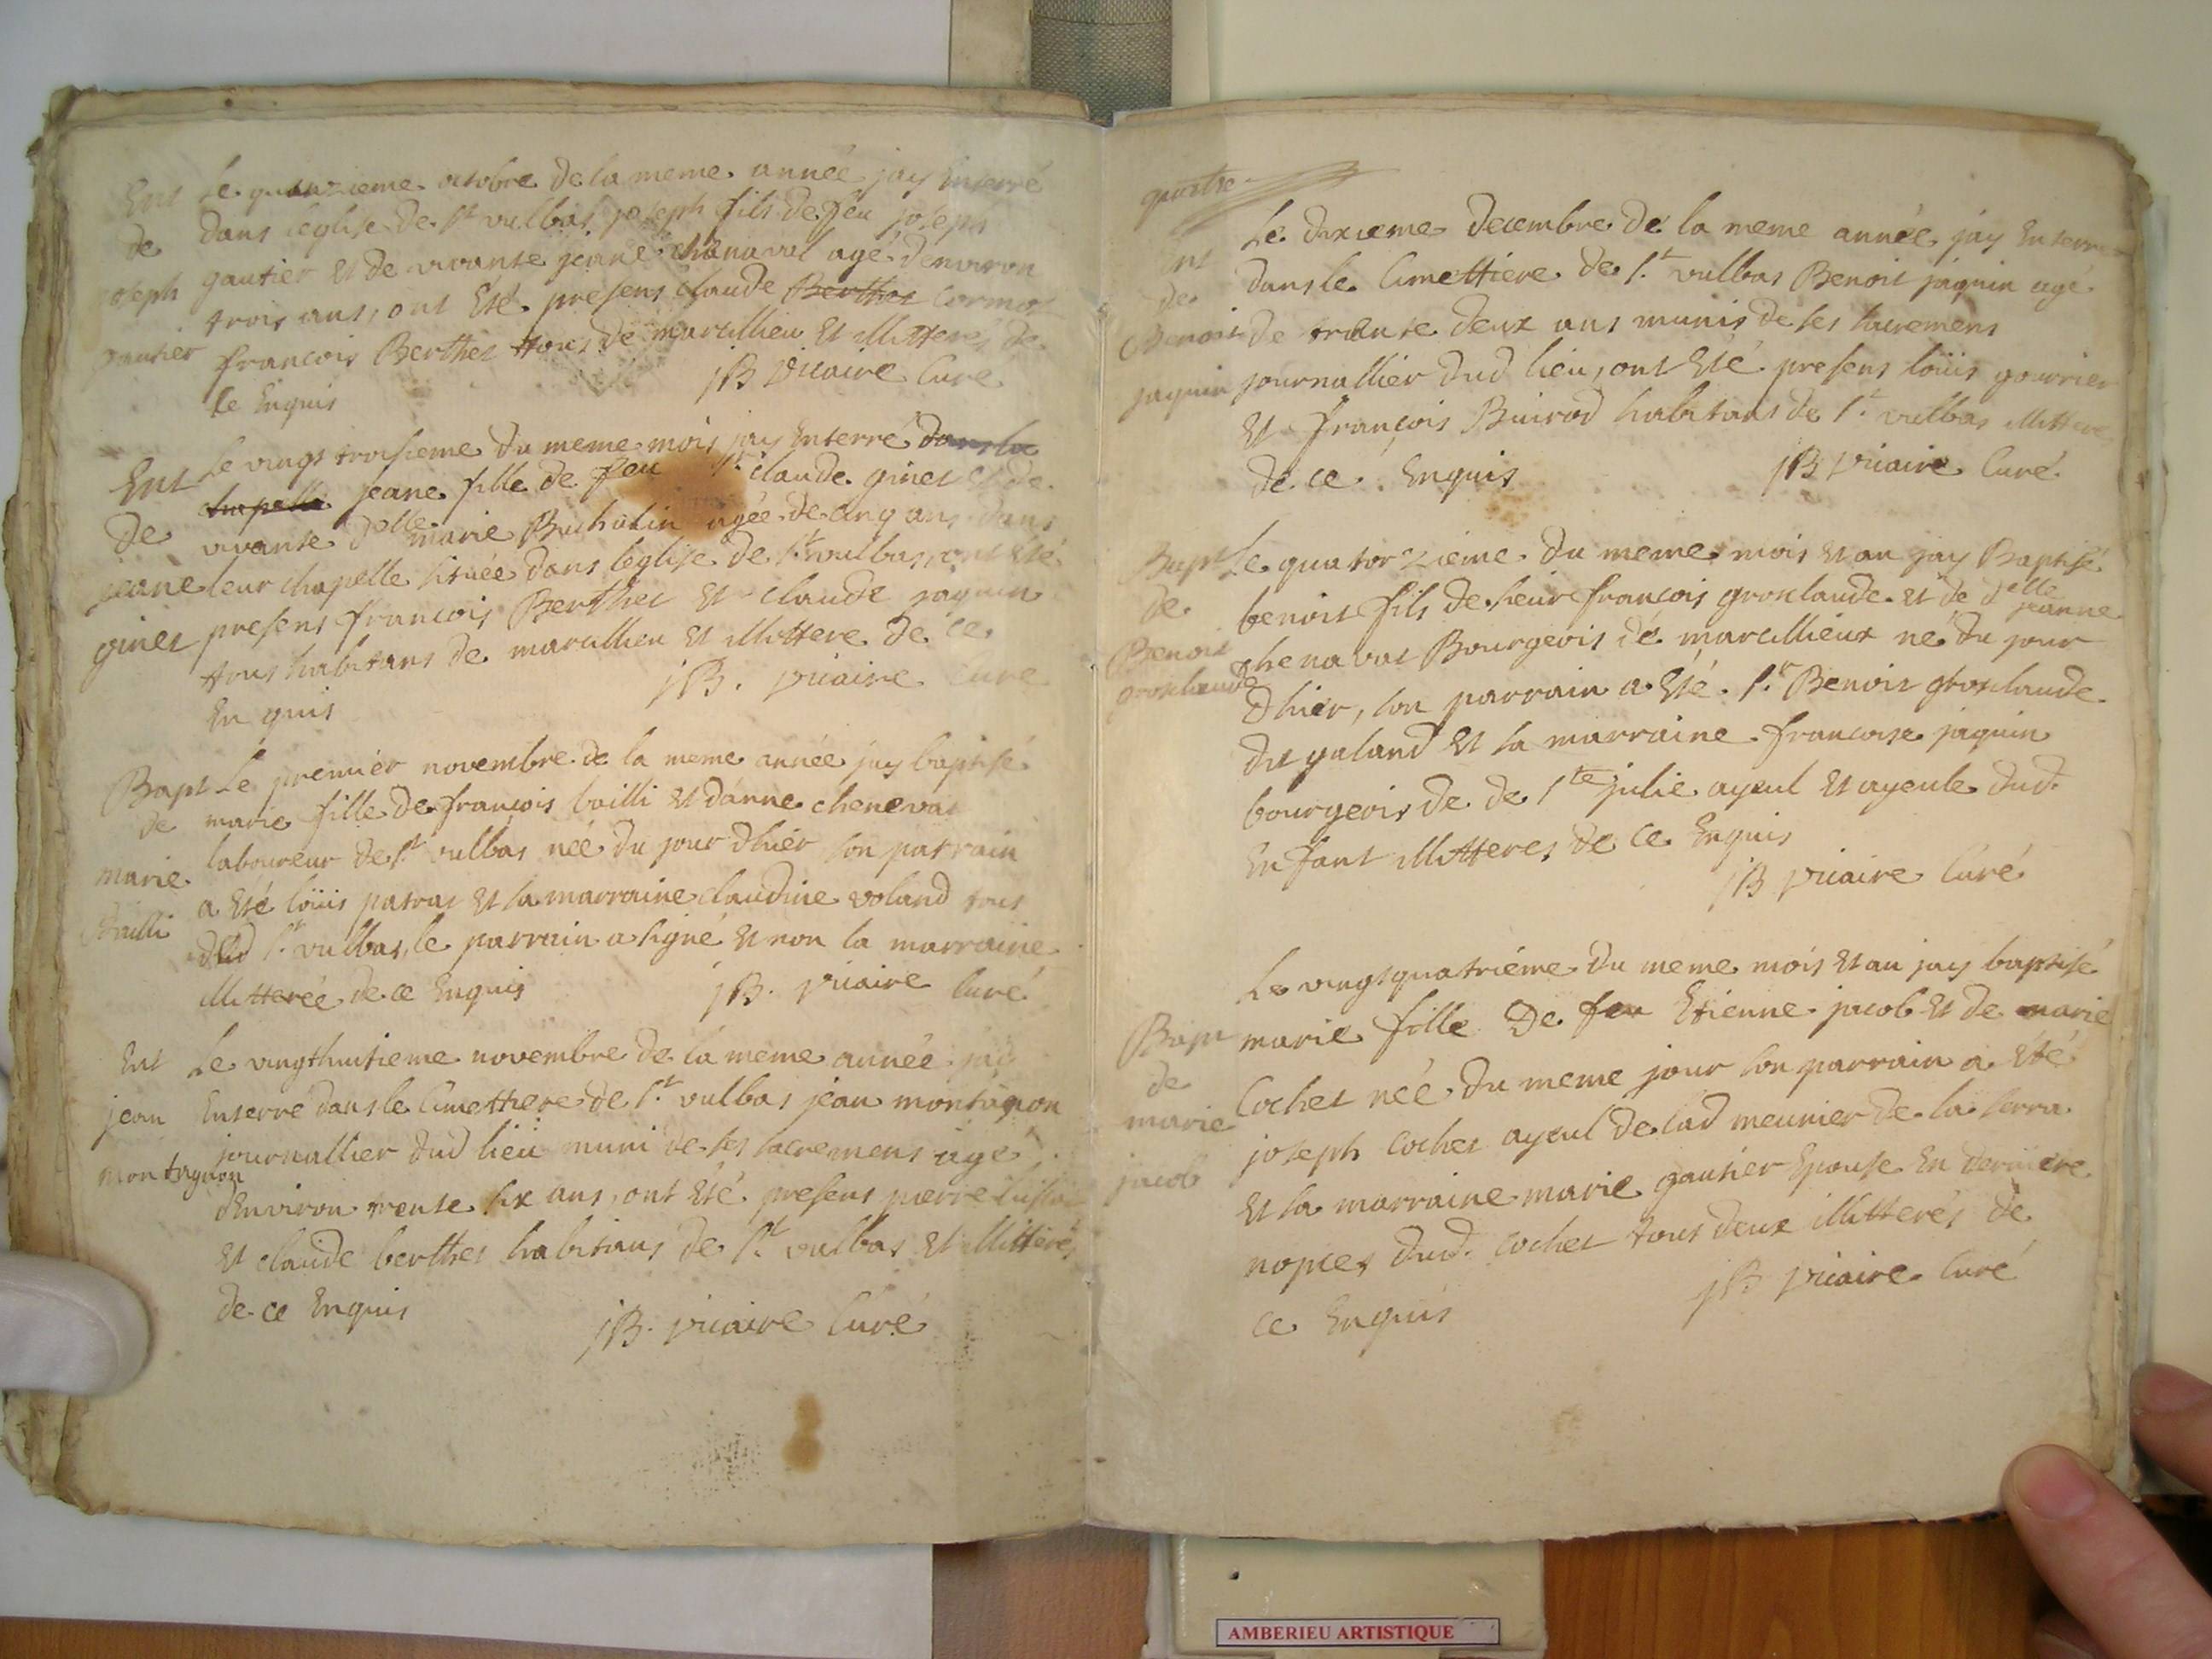 Ent
de
joseph
gautier
Le quinzieme octobre de la meme année jay Enterré
dans leglise de st vulbas joseph fils de feu joseph
gautier et de vivante jeane chenaval agé denviron
trois ans, ont Eté presens claude Berthet cormot
francois Berthet tous de marcillieu et illitterés de
ce Enquis
jB Vicaire Curé
Ent
de
jeane
ginet
Le vingt troisieme du meme mois jay Enterré dans la
chapelle jeane fille de feu sr claude ginet et de
vivante delle marie Buchalin agée de cinq ans dans
leur chapelle située dans leglise de st vulbas, ont Eté
presens francois Berthet et claude jaquin
tous habitans de marcillieu et illittere de ce
En quis
jB. vicaire Curé
Bapt
de
marie
bailli
Le premier novembre de la meme année jay baptisé
marie fille de francois bailli et danne chenevat
laboureur de st vulbas née du jour dhier son parrain
a Eté loüis patras et sa marraine claudine voland tous
dud st vulbas, le parrain a signé et non la marraine
illitterée de ce Enquis
jB. vicaire Curé
Ent
jean
montagnon
Le vingthuitieme novembre de la meme année jay
Enterré dans le Cimettiere de st vulbas jean montagnon
journallier dud lieu muni de ses sacremens agé
denviron trente six ans, ont Eté presens pierre
et claude berthet habitans de st vulbas et illitterés
de ce Enquis
jB. vicaire Curé
quatre
Ent
de
Benoit
jaquin
Le dixieme decembre de la meme année jay Enterré
dans le Cimettiere de st vulbas Benoit jaquin agé
de trante deux ans munis de ses sacremens
journallier dud lieu, ont Eté presens loüis gourrier
et françois Buirod habitans de st vulbas illittere
de ce Enquis
jB vicaire Curé
Bapt
de
Benoit
grosclaude
Le quatorzieme du meme mois et an jay Baptisé
benoit fils de sieur francois grosclaude et de delle jeanne
chenavat Bourgeois de marcillieux né du jour
dhier, son parrain a Eté sr Benoit grosclaude
dit galand et sa marraine francoise jaquin
bourgeois de de ste julie ayeul et ayeule dud.
Enfant illitteres de ce Enquis
jB vicaire Curé
Bapt
de
marie
jacob
Le vingtquatrieme du meme mois et an jay baptisé
marie fille De feu Etienne jacob et de marie
Cochet née du meme jour son parrain a Eté
joseph Cochet ayeul de lad meunier de la serra
et sa marraine marie gautier Epouse En derniere
nopces dud. cochet tous deux illitterés de
ce Enquis
jB vicaire Curé
AMBERIEU ARTISTIQUE